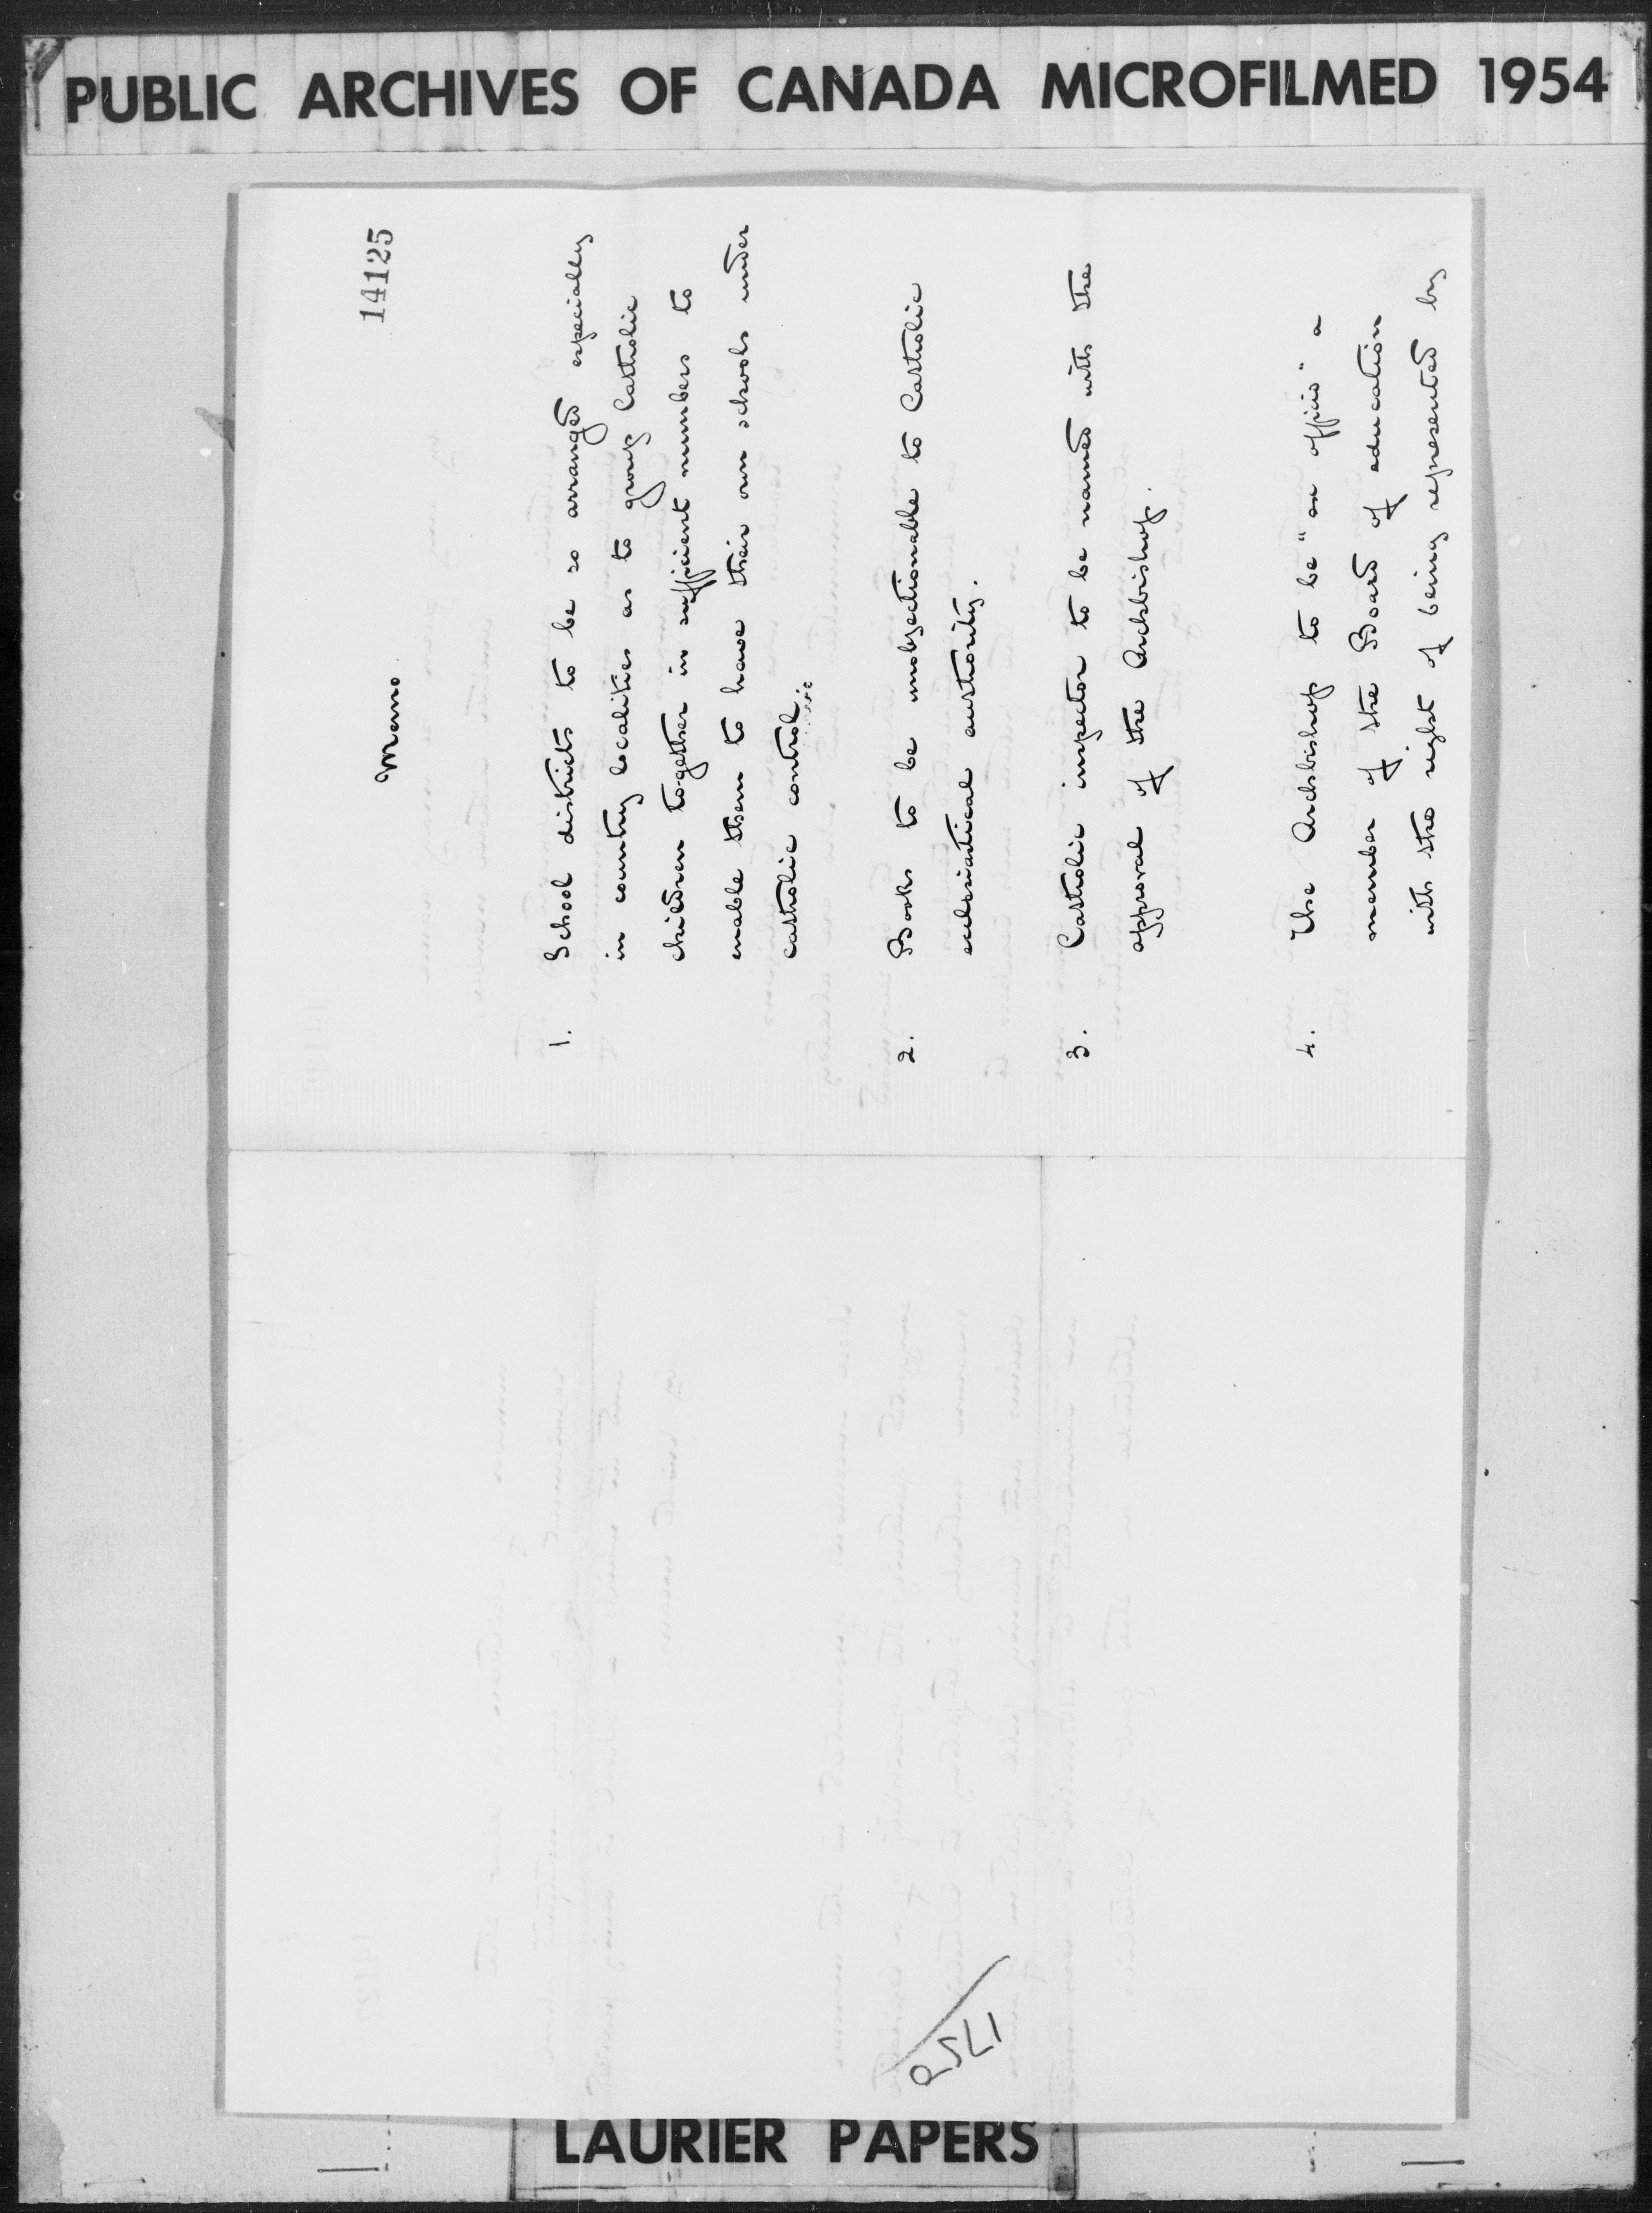 PUBLIC ARCHIVES OF CANADA MICROFILMED 1954
14125
Memo.
1. School districts to be so arranged especially
in country localities as to group Catholic
children together in sufficient numbers to
enable them to have their own schools under
catholic control.
2. Books to be unobjectionable to Catholic
ecclesiastical authority.
3. Catholic inspector to be named with the
approval of the Archbishop.
4. The Archbishop to be "ex officio" a
member of the Board of education
with the right of being represented by
LAURIER PAPERS